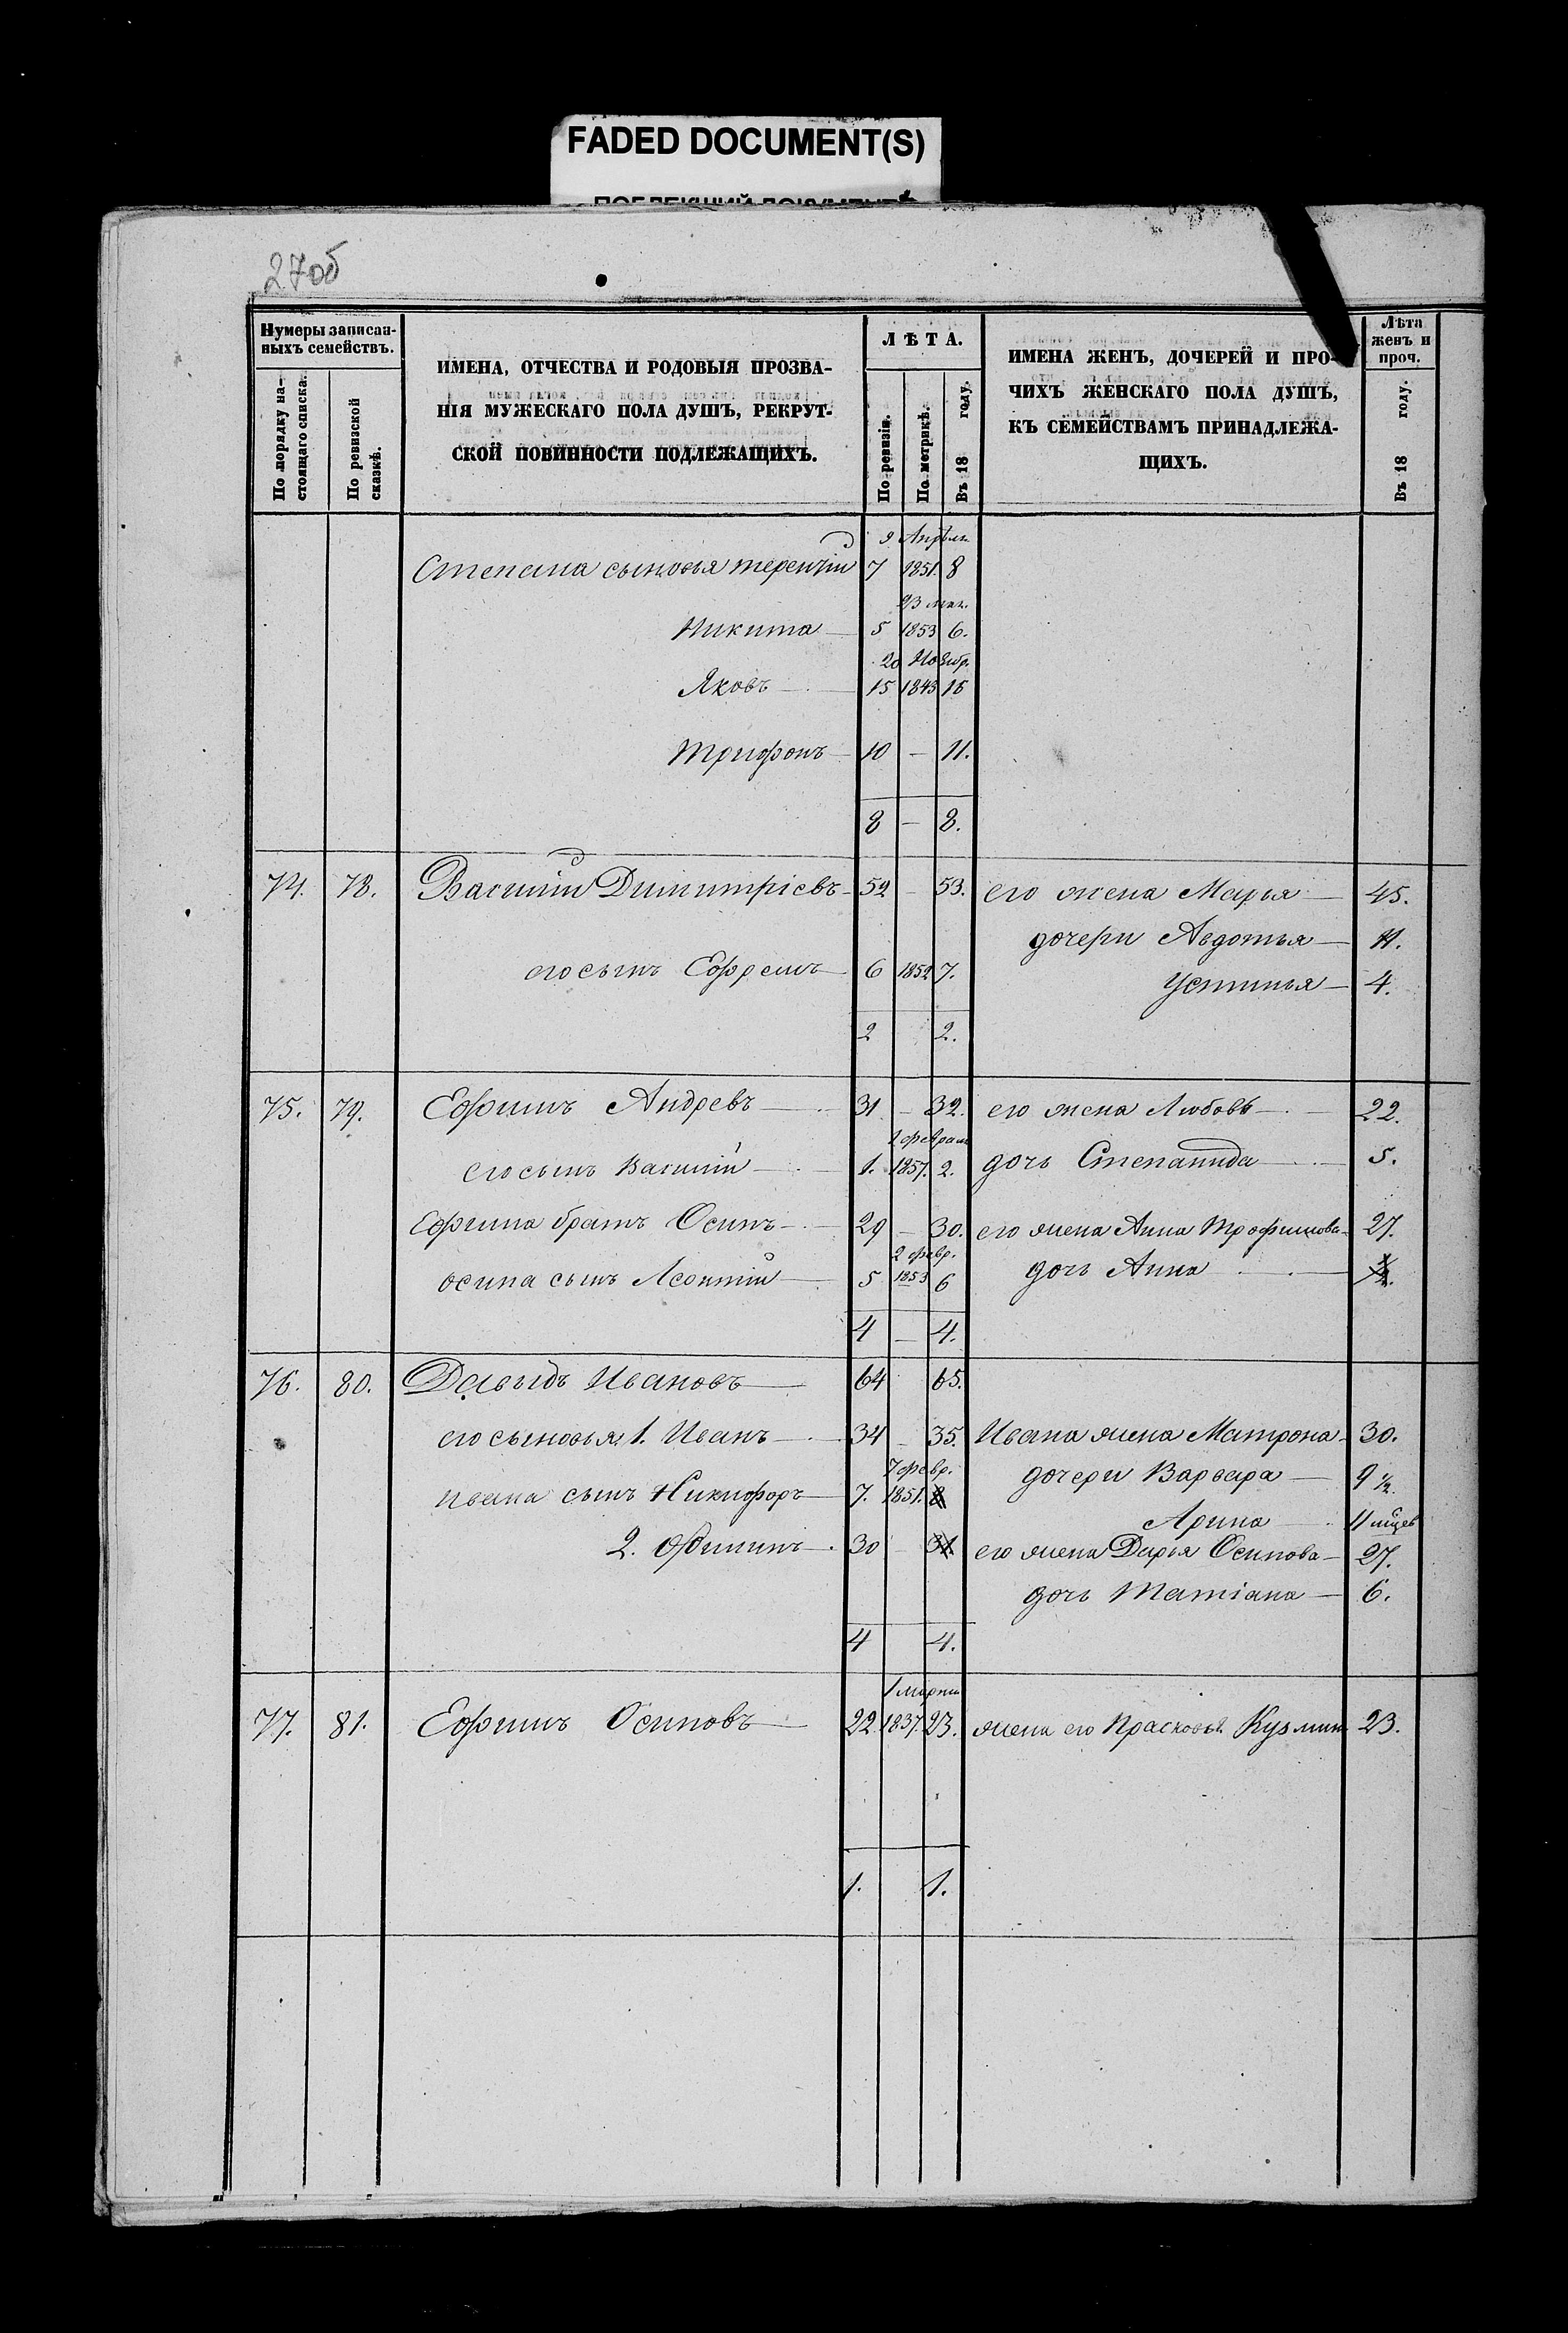 FADED DOCUMENT(S)
27об
Нумеры записан-
ныхъ семействъ.
По порядку на-
стоящаго списка.
По ревизской
сказкѣ.
ИМЕНА, ОТЧЕСТВА И РОДОВЫЯ ПРОЗВА-
НІЯ МУЖЕСКАГО ПОЛА ДУШЪ, РЕКРУТ-
СКОЙ ПОВИННОСТИ ПОДЛЕЖАЩИХЪ.
ЛѢТА.
По ревизіи.
По метрикѣ.
Въ 18 году.
ИМЕНА ЖЕНЪ, ДОЧЕРЕЙ И ПРО-
ЧИХЪ ЖЕНСКАГО ПОЛА ДУШЪ,
КЪ СЕМЕЙСТВАМЪ ПРИНАДЛЕЖА-
ЩИХЪ.
Лѣта
женъ и
проч.
Въ 18 году.
9 Апрѣля
Степана сыновья терентій 7 1851. 8
23 мая.
Никита 5 1853 6.
20 Ноябр.
Яковъ 15 1843 16
Трифонъ 10 — 11.
8 — 8.
74. 78. Василій Димитріевъ 52 — 53. его жена Марья 45.
дочери Авдотья 11.
его сынъ Ефремъ 6 1852 7.
Устинья 4.
2 2.
75. 79. Ефимъ Андревъ 31 — 32. его жена Любовь 22.
февраля
его сынъ Василій 1. 1857. 2. дочь Степанида 5.
Ефима братъ Осипъ 29 — 30. его жена Анна Трофимова 27.
2 февр.
осипа сынъ Леонтій 5 1853 6 дочь Анна
4 — 4.
76. 80. Давыдъ Ивановъ 64 65.
его сыновья 1. Иванъ 34 — 35. Ивана жена Матрона 30.
7 февр.
дочери Варвара 9 ½
ивана сынъ Никифоръ 7. 1851. 8
Арина 11 мцев
2. Филипъ 30 — 31 его жена Дарья Осипова 27.
дочь Татіана 6.
4 4.
1 марта
77. 81. Ефимъ Осиповъ 22. 1837. 23. жена его Прасковья Кузмин 23.
1. 1.